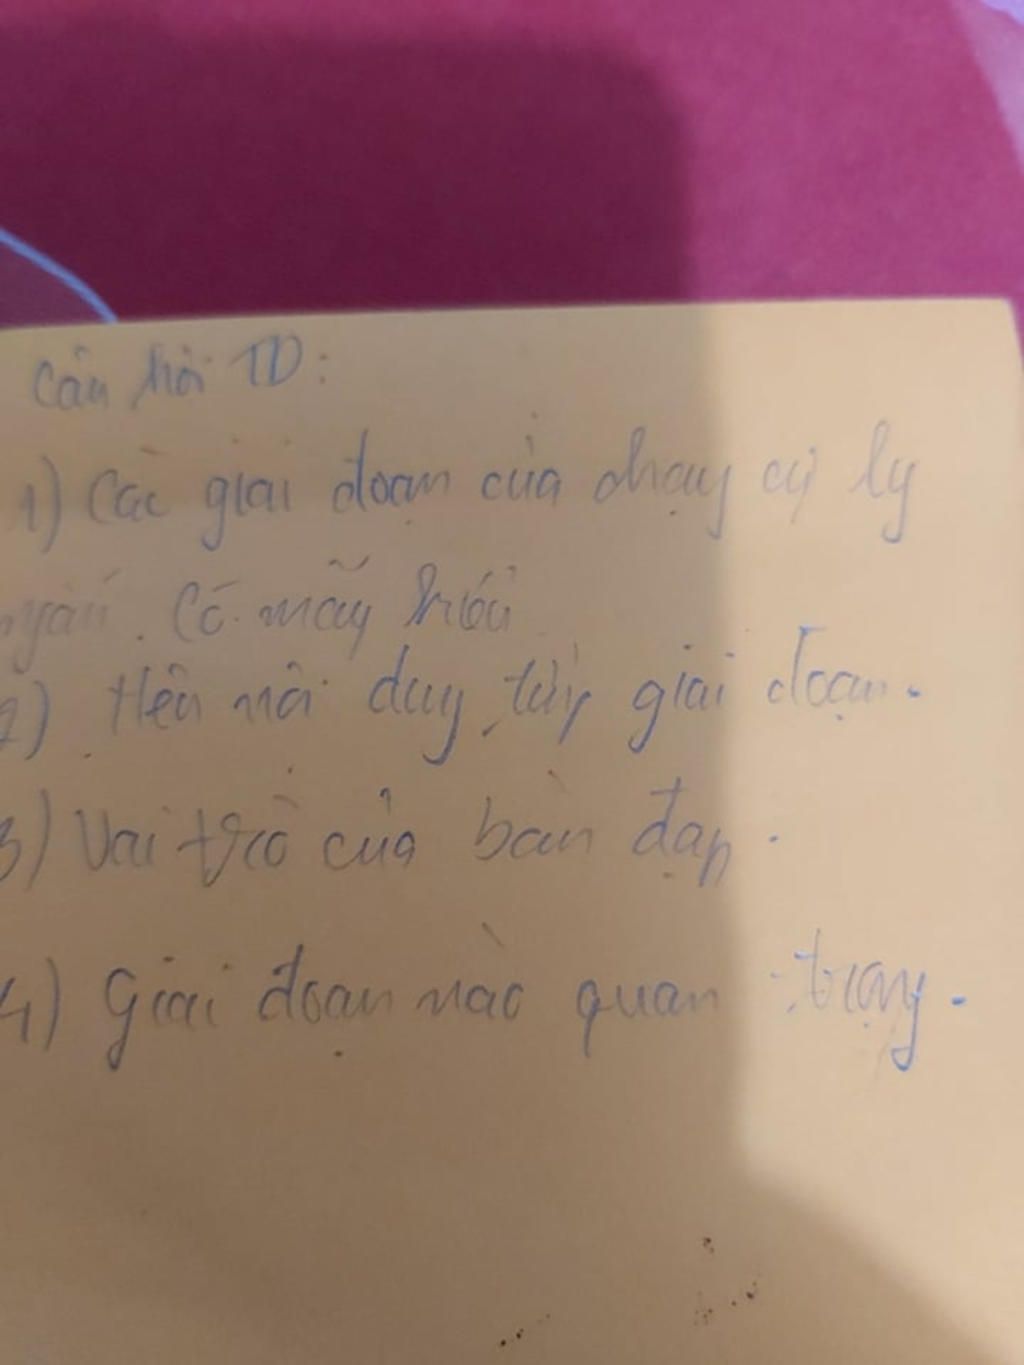 Câu hỏi TD:
1) Các giai đoạn của chạy cự ly
ngắn. Có mấy
2) nội dung từng giai đoạn.
3) Vai trò của bàn đạp.
4) Giai đoạn nào quan trọng.